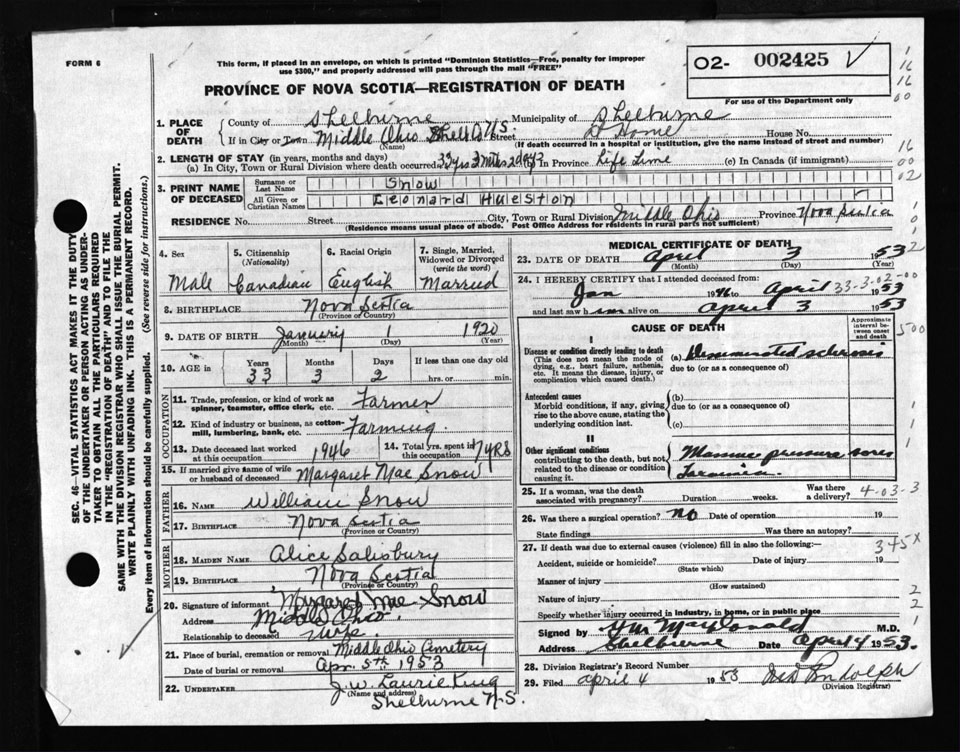 FORM 6
This form, if placed in an envelope, on which is printed "Dominion Statistics—Free, penalty for improper
use $300," and properly addressed will pass through the mail "FREE"
O2- 002425 V
For use of the Department only
PROVINCE OF NOVA SCOTIA—REGISTRATION OF DEATH
1. PLACE OF DEATH
County of Shelburne Municipality of Shelburne
If in City or Town Middle Ohio Shel Co N.S. Street At Home House No.
(Name) (If death occurred in a hospital or institution, give the name instead of street and number)
2. LENGTH OF STAY (in years, months and days)
(a) In City, Town or Rural Division where death occurred 33 yrs 3 mths 2 days (b) in Province Life Time (c) In Canada (if immigrant)
3. PRINT NAME OF DECEASED
Surname or Last Name Snow
All Given or Christian Names Leonard Hueston
RESIDENCE No. Street City, Town or Rural Division Middle Ohio Province Nova Scotia
(Residence means usual place of abode. Post Office Address for residents in rural parts not sufficient)
4. Sex Male
5. Citizenship (Nationality) Canadian
6. Racial Origin English
7. Single, Married, Widowed or Divorced (write the word) Married
8. BIRTHPLACE Nova Scotia
(Province or Country)
9. DATE OF BIRTH January 1 1920
(Month) (Day) (Year)
10. AGE in Years Months Days If less than one day old
33 3 2 hrs. or min.
OCCUPATION
11. Trade, profession, or kind of work as spinner, teamster, office clerk, etc. Farmer
12. Kind of industry or business, as cotton-mill, lumbering, bank, etc. Farming
13. Date deceased last worked at this occupation 1946
14. Total yrs. spent in this occupation 7 yrs
15. If married give name of wife or husband of deceased Margaret Mae Snow
FATHER
16. NAME William Snow
17. BIRTHPLACE Nova Scotia
(Province or Country)
MOTHER
18. MAIDEN NAME Alice Salisbury
19. BIRTHPLACE Nova Scotia
(Province or Country)
20. Signature of informant Margaret Mae Snow
Address Middle Ohio
Relationship to deceased Wife
21. Place of burial, cremation or removal Middle Ohio Cemetery
Date of burial or removal Apr. 5th 1953
22. UNDERTAKER J.W. Laurie King
(Name and address)
Shelburne N.S.
MEDICAL CERTIFICATE OF DEATH
23. DATE OF DEATH April 3 1953
(Month) (Day) (Year)
24. I HEREBY CERTIFY that I attended deceased from:
Jan 1946 to April 3 1953
33-3-02-00
and last saw him alive on April 3 1953
CAUSE OF DEATH
Approximate interval between onset and death
I
Disease or condition directly leading to death (a) Disseminated sclerosis
(This does not mean the mode of dying, e.g., heart failure, asthenia, etc. It means the disease, injury, or complication which caused death.)
due to (or as a consequence of)
Antecedent causes
Morbid conditions, if any, giving rise to the above cause, stating the underlying condition last.
(b)
due to (or as a consequence of)
(c)
II
Other significant conditions
contributing to the death, but not related to the disease or condition causing it.
Massive pressure sores
25. If a woman, was the death associated with pregnancy? Duration weeks. Was there a delivery?
4-03-3
26. Was there a surgical operation? No Date of operation 19
State findings Was there an autopsy?
27. If death was due to external causes (violence) fill in also the following:—
345X
Accident, suicide or homicide? Date of injury 19
(State which)
Manner of injury
(How sustained)
Nature of injury
Specify whether injury occurred in industry, in home, or in public place
Signed by MacDonald M.D.
Address Shelburne Date April 4 1953
28. Division Registrar's Record Number
29. Filed April 4 1953 Randolph
(Division Registrar)
SEC. 46—VITAL STATISTICS ACT MAKES IT THE DUTY
OF THE UNDERTAKER OR PERSON ACTING AS UNDER-
TAKER TO OBTAIN ALL THE PARTICULARS REQUIRED
IN THE "REGISTRATION OF DEATH" AND TO FILE THE
SAME WITH THE DIVISION REGISTRAR WHO SHALL ISSUE THE BURIAL PERMIT.
WRITE PLAINLY WITH UNFADING INK. THIS IS A PERMANENT RECORD.
Every item of information should be carefully supplied. (See reverse side for instructions.)